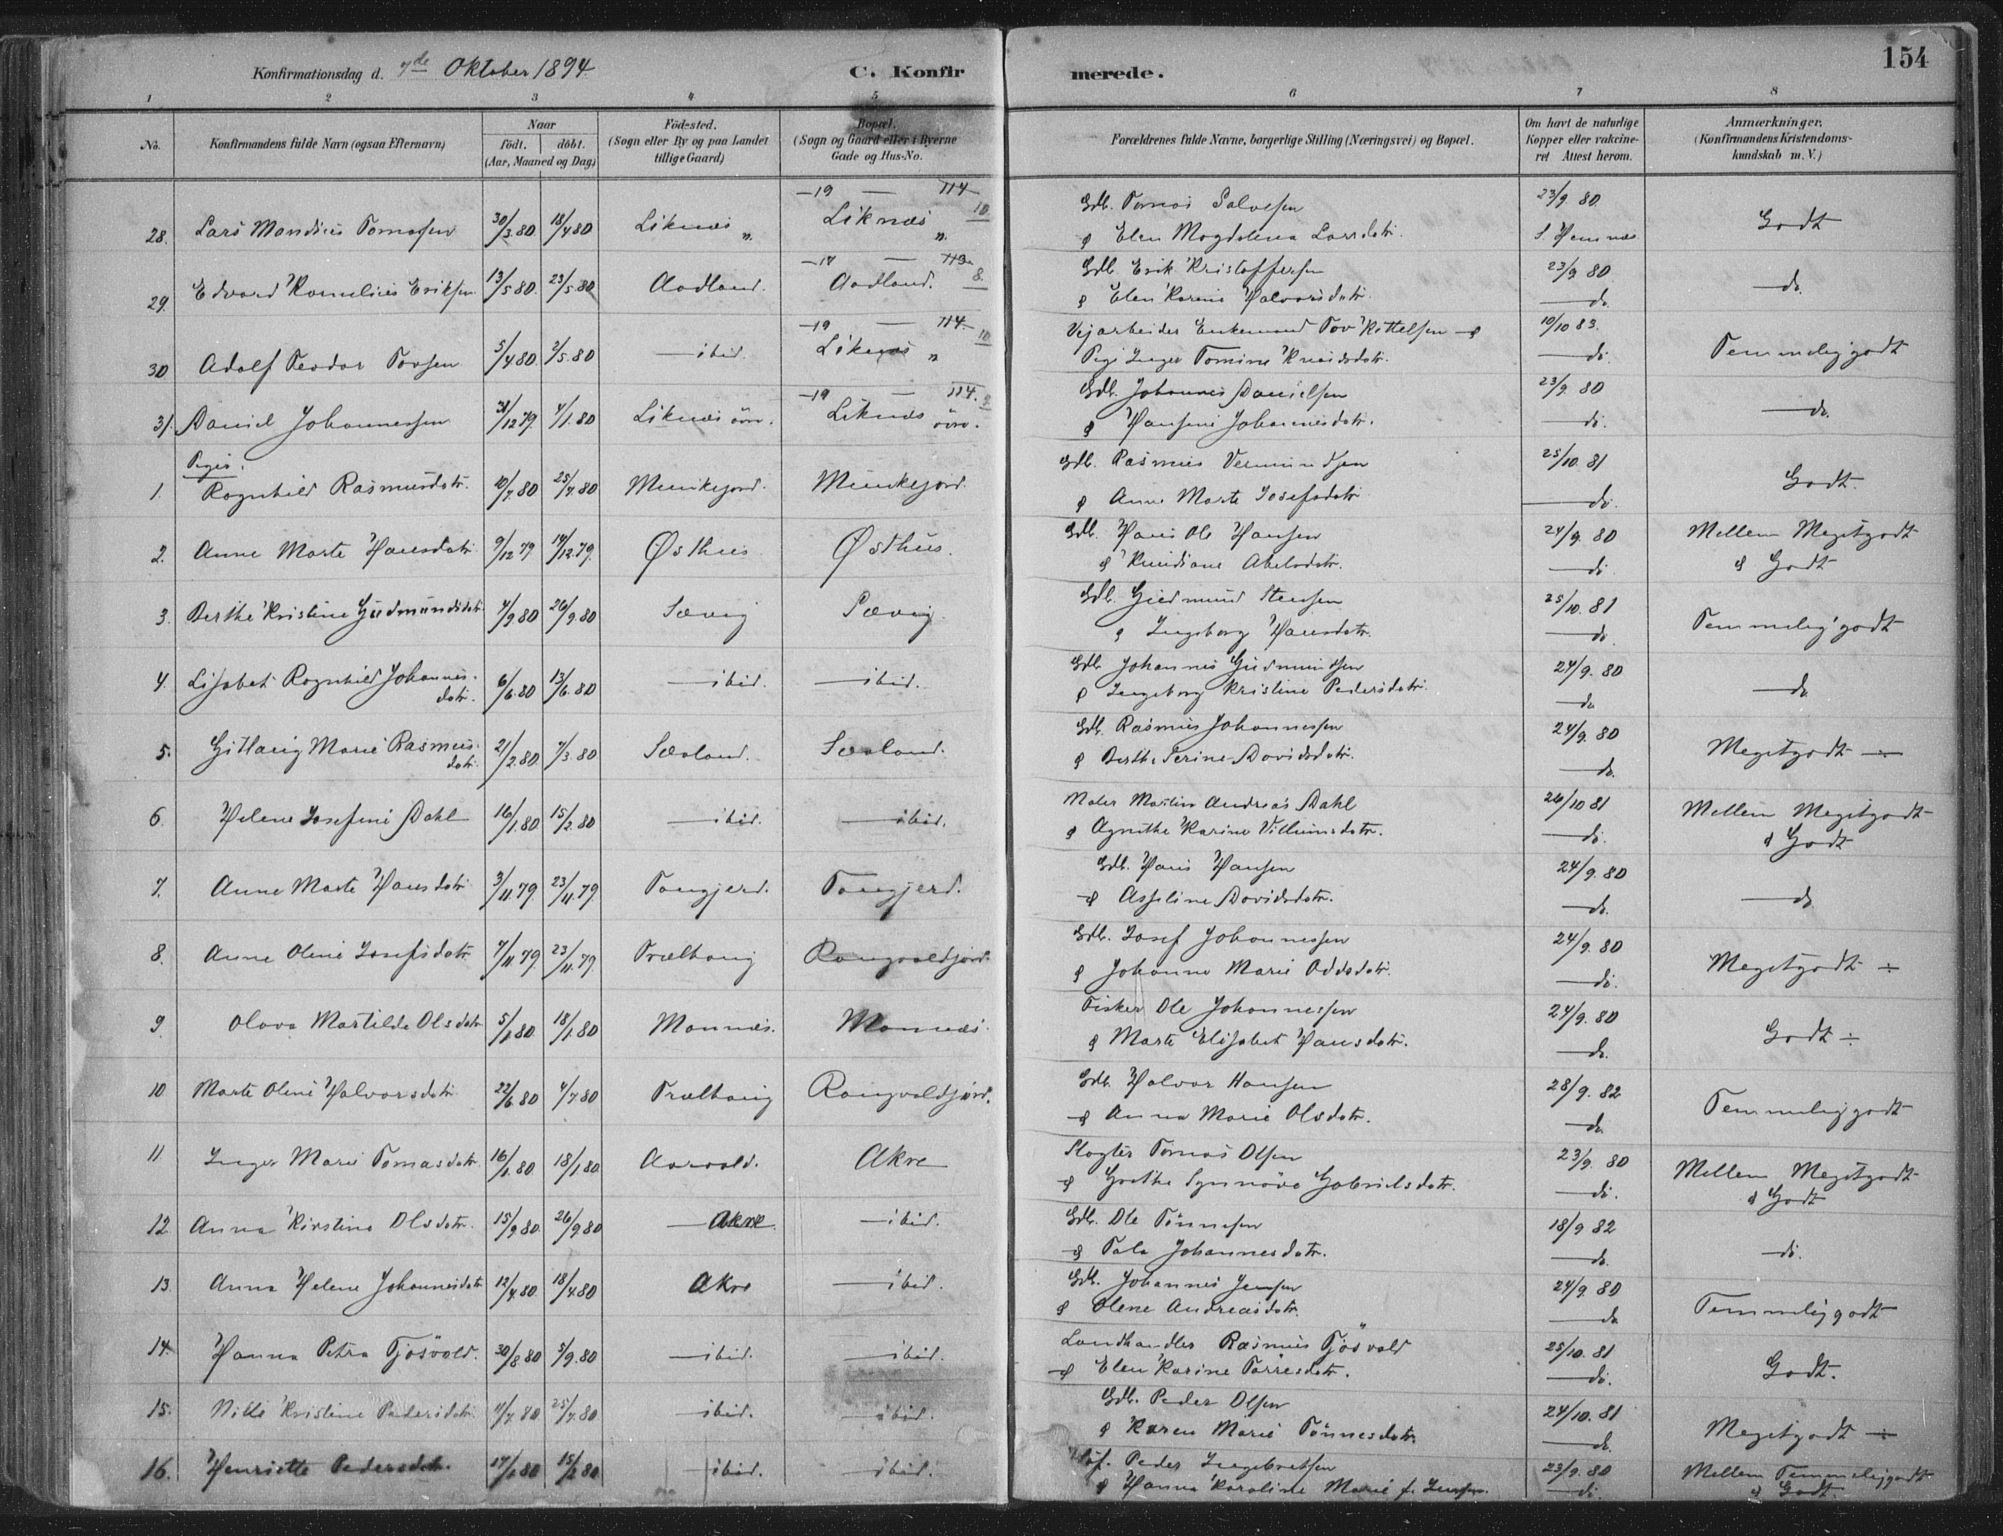 Konfirmationsdag d. 7de Oktober 1894.
C. Konfirmerede.
154
1 2 3 4 5 6 7 8
No.
Konfirmandens fulde Navn (ogsaa Efternavn)
Naar
födt. döbt.
(Aar, Maaned og Dag)
Födested.
(Sogn eller By og paa Landet
tillige Gaard)
Bopæl.
(Sogn og Gaard eller i Byerne
Gade og Hus-No.
Forældrenes fulde Navne, borgerlige Stilling (Næringsvei) og Bopæl.
Om havt de naturlige
Kopper eller vakcine-
ret Attest herom.
Anmærkninger.
(Konfirmandens Kristendoms-
kundskab m. V.)
—19 — 114 10
28. Lars Mandius Tomasen 30/3.80 18/4.80 Liknæs „ Liknæs „ Gdb. Tomas Salvesen 23/9 80 Godt
& Elen Magdalena Larsdtr.
—14 — 113 8.
29. Edvard Kornelius Eriksen 13/5.80 23/5.80 Aadland. Aadland. Gdb. Erik Kristoffersen 23/9 80 —do.
& Elen Karine Halvorsdatr. —do.
—19 — 114 10
30 Adolf Teodor Tovsen 5/4.80 2/5.80 —ibid. Liknæs „ Vejarbeider Enkemand Tov Kittelsen & 10/10 83. Temmelig godt
Pige Inger Tomine Knudsdtr. —do.
—19 — 114. 9
31. Daniel Johannessen 31/12 79 4/1.80 Liknæs övre. Liknæs övre. Gdb. Johannes Danielsen 23/9. 80 —do.
& Hansine Johannesdtr. —do.
Piger.
1. Ragnhild Rasmusdtr. 10/7.80 25/7.80 Munkejord. Munkejord. Gdb. Rasmus Vermundsen 25/10.81 Godt.
& Anne Marte Josefsdtr —do.
2. Anne Marte Hansdatr 9/12 79 14/12.79. Østhus Østhus. Gdb. Hans Ole Hansen 24/9. 80 Mellem Megetgodt
& Knudiane Abelsdtr. —do & Godt
3. Berthe Kristine Gudmundsdatr 4/9 80 26/9.80 Sævig Sævig. Gdb. Gudmund Stensen 25/10.81 Temmelig godt
& Ingeborg Hansdtr. —do
4. Lisabet Ragnhild Johannes- 6/6.80 13/6.80 —ibid. —ibid. Gdb. Johannes Gudmundsen 24/9. 80 —do.
datr. & Ingeborg Kristine Pedersdatr —do
5. Gitlaug Marie Rasmus- 21/2.80 7/3.80 Sæaland. Sæaland. Gdb. Rasmus Johannessen 24/9. 80 Megetgodt ÷
datr. & Berthe Serine Davidsdatr. —do.
6. Helene Josefine Dahl 16/1.80 15/2.80 —ibid. —ibid. Maler Martin Andreas Dahl 26/10 81 Mellem Megetgodt
& Agnethe Karine Villumsdatr. —do. & Godt
7. Anne Marte Hansdatr 3/11.79. 23/11.79 Tangjerd. Tangjerd. Gdb. Hans Hansen 24/9.80 —do
& Asseline Davidsdtr. —do.
8. Anne Oline Josefsdatr 7/11.79 23/11.79. Trælhaug Rangvaldjord. Gdb. Josef Johannessen 24/9.80 Megetgodt ÷
& Johanne Marie Oddsdatr. —do.
9. Olava Martilde Olsdatr 5/1.80 18/1.80 Mannæs. Mannæs. Fisker Ole Johannessen 24/9.80 Godt ÷
& Marte Elisabet Hansdatr. —do.
10 Marte Oline Halvorsdatr 22/6 80 4/7 80 Trælhaug Rangvaldjord. Gdb. Halvor Hansen 28/9. 82 Temmelig godt
& Anna Marie Olsdatr. —do
11 Inger Marie Tomasdatr 16/1.80 18/1.80 Aarvold. Akre Slagter Tomas Olsen 23/9. 80 Mellem Megetgodt
& Grethe Synnöve Gabrielsdatr. —do. & Godt
12 Anna Kirstine Olsdatr. 15/9.80 26/9.80 —Akre. —ibid. Gdb. Ole Tönnesen 18/9 82 —do.
& Tala Johannesdatr. —do.
13. Anna Helene Johannesdatr 12/4.80 18/4.80 Akre —ibid. Gdb. Johannes Jensen 24/9. 80 Temmelig godt
& Oline Andreasdatr. —do
14. Hanna Petra Tjösvold. 30/8 80 5/9.80 —ibid. —ibid. Landhandler Rasmus Tjösvold 25/10.81 Godt.
& Elen Karine Torresdatr. —do.
15. Nille Kristine Pedersdatr. 11/7.80 25/7.80 —ibid. —ibid. Gdb. Peder Olsen 24/10.81 Megetgodt ÷
& Karen Marie Tönnesdatr. —do.
16. Henriette Pedersdatr. —ibid. —ibid. Peder Ingebretsen 23/9.80 Mellem Temmelig godt
& Hanna Karoline Marie f. Jensen. —do. & Godt.